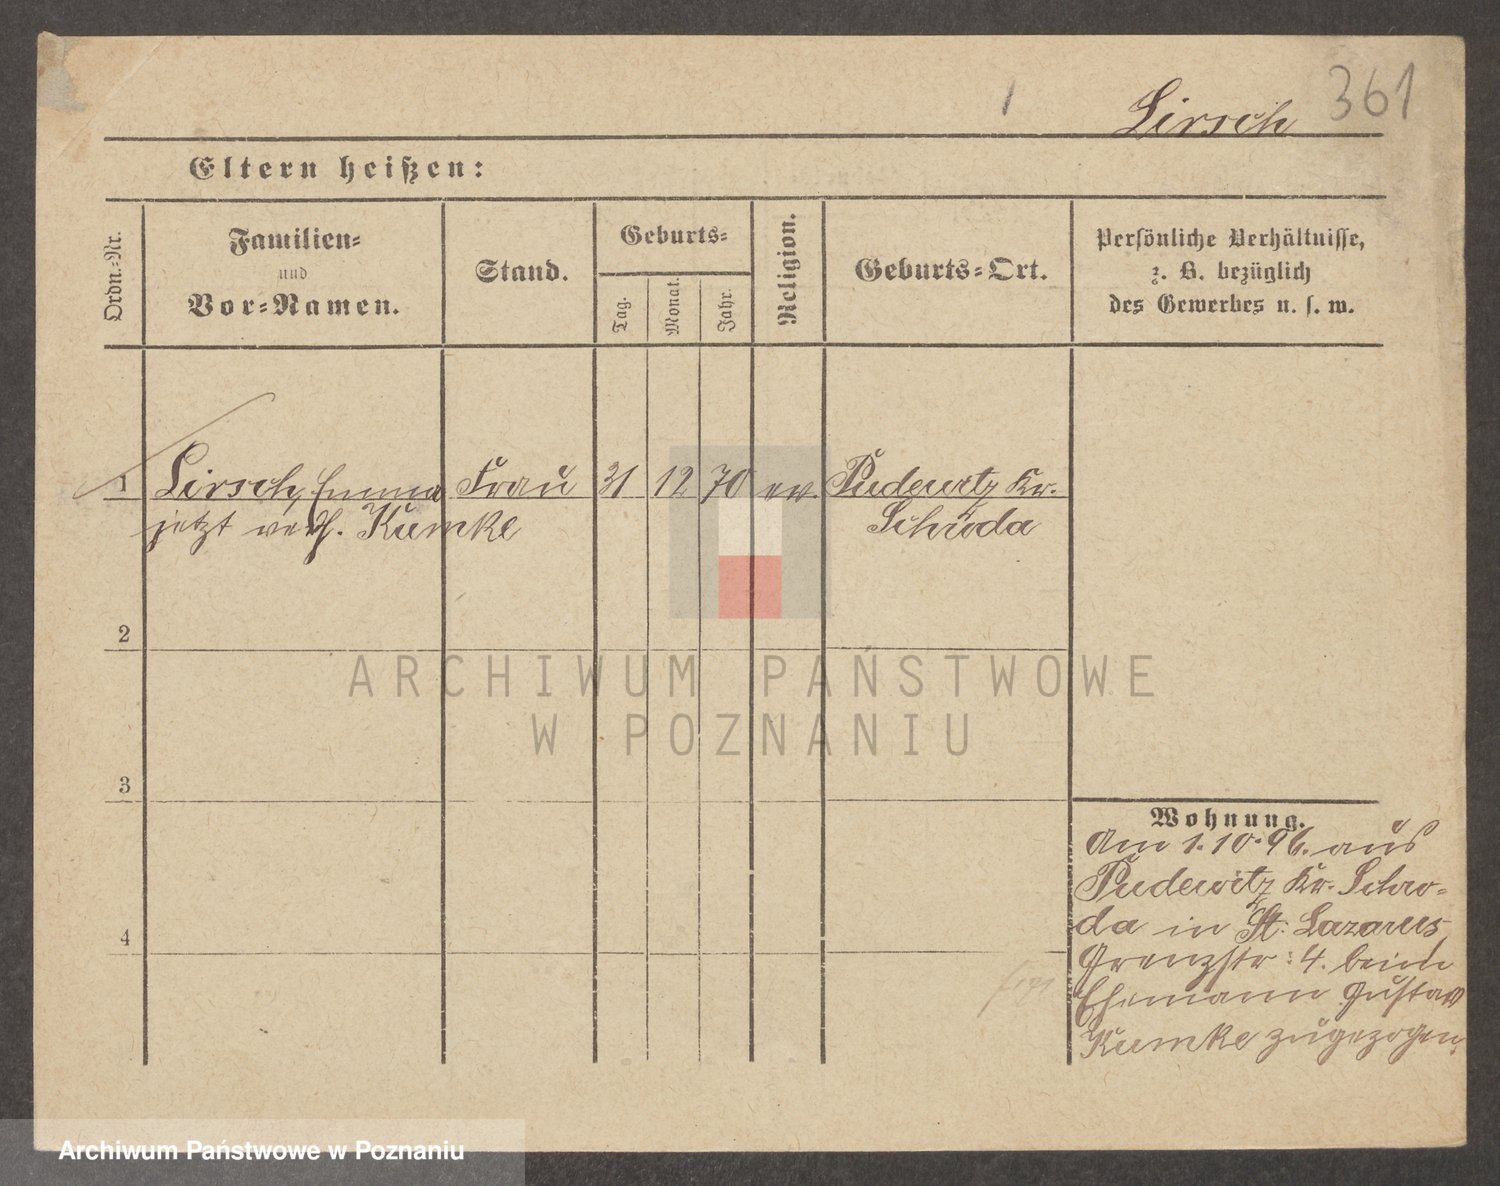 361
Lirsch
Eltern heißen:
Ordn.-Nr.
Familien-
und
Vor-Namen.
Stand.
Geburts-
Tag.
Monat.
Jahr.
Religion.
Geburts-Ort.
Persönliche Verhältnisse,
z. B. bezüglich
des Gewerbes u. s. w.
1 Lirsch, Emma Frau 31 12 70 ev. Pudewitz Kr.
jetzt verh. Kumke Schroda
2
ARCHIWUM PAŃSTWOWE
W POZNANIU
3
Wohnung.
Am 1.10.96. aus
Pudewitz Kr. Schro-
da in St. Lazarus
4
Grenzstr: 4. beim
Ehemann Gustav
Kumke zugezogen.
Archiwum Państwowe w Poznaniu